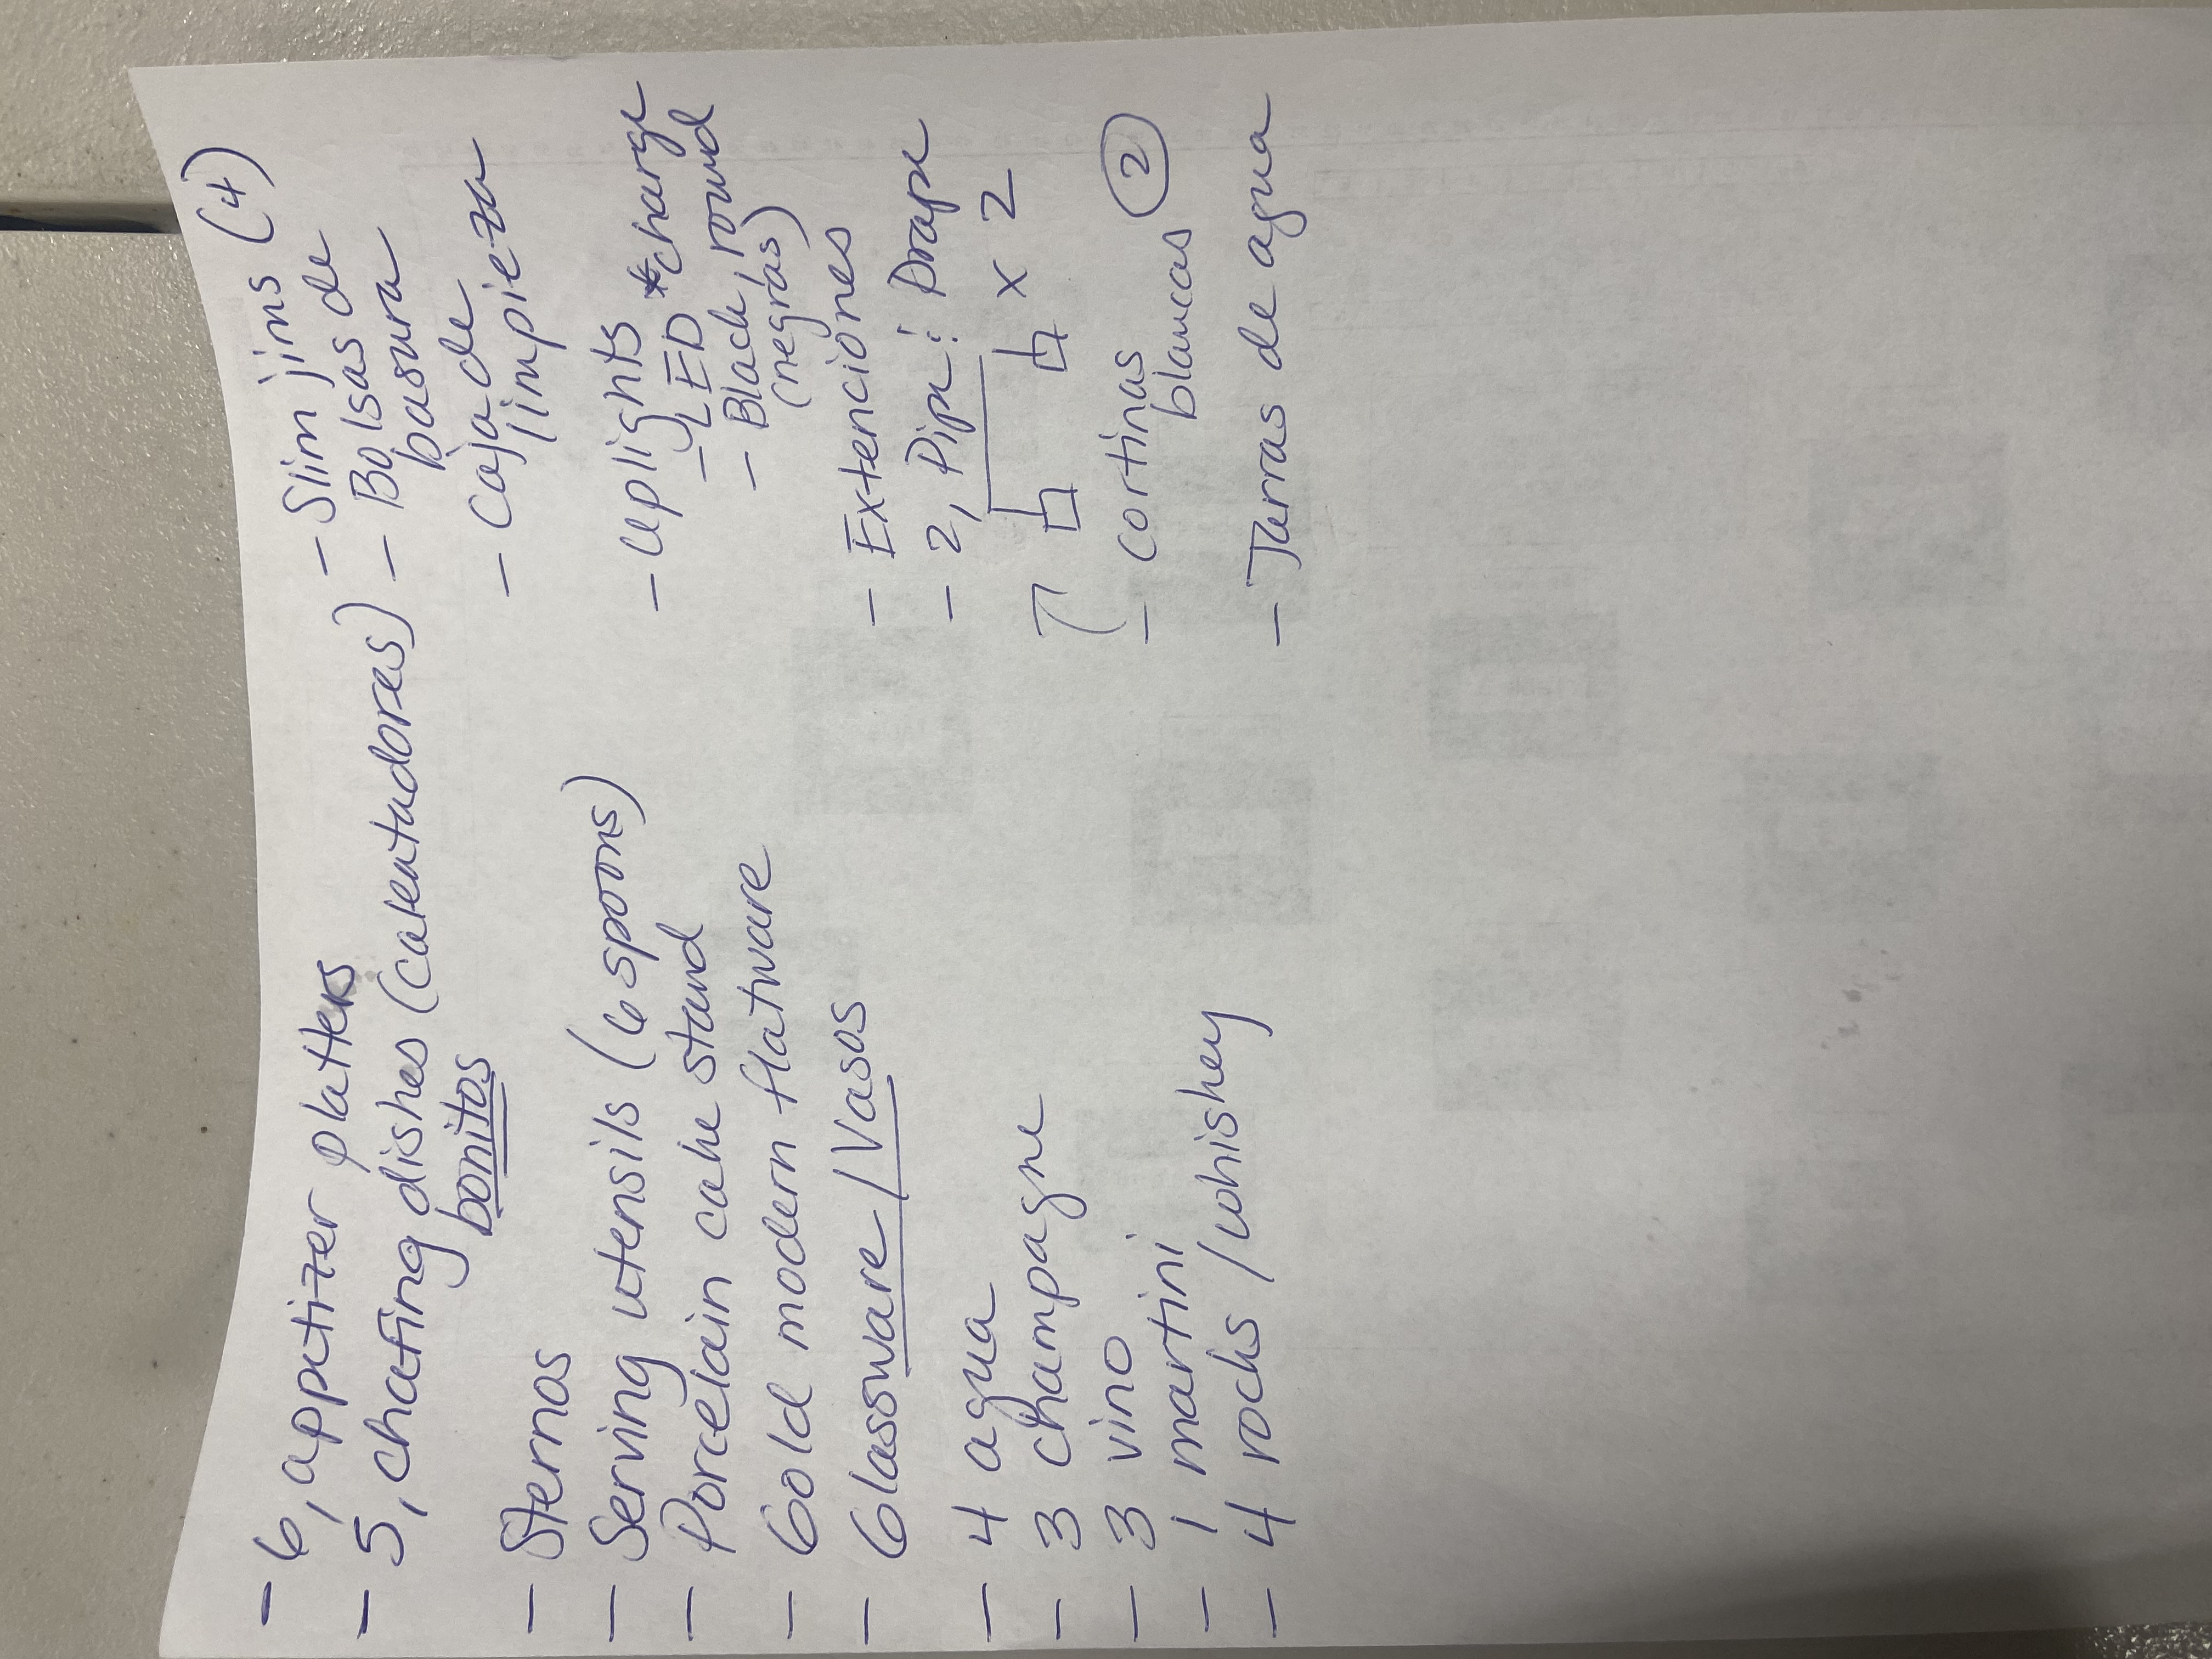 - 6, appetizer platters
- 5, chafing dishes (calentadores)
bonitos
- Sternos
- Serving utensils (6 spoons)
- Porcelain cake stand
- Gold modern flatware
- Glassware / Vasos
- 4 agua
- 3 champagne
- 3 vino
- 1 martini
- 4 rocks / whiskey
- Slim jims (4)
- Bolsas de
basura
- Caja de
limpieza
- uplights
- LED *charge
- Black, round
(negras)
- Extenciones
- 2, Pipe : Drape
x 2
- cortinas
blancas 2
- Jarras de agua